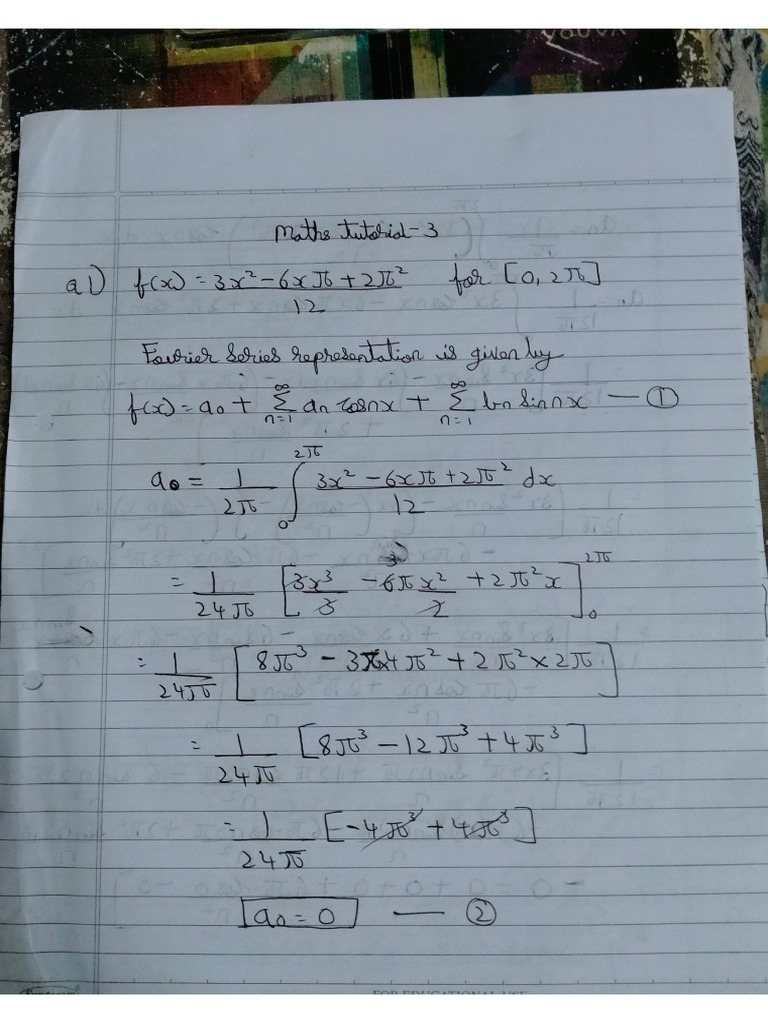 Maths tutorial-3
a1) f(x) = 3x² - 6xπ + 2π² / 12 for [0, 2π]
Fourier Series representation is given by
f(x) = a₀ + Σ_{n=1}^{∞} aₙ cosnx + Σ_{n=1}^{∞} bₙ sinnx — ①
a₀ = 1/2π ∫₀^{2π} 3x² - 6xπ + 2π² / 12 dx
= 1/24π [3x³/3 - 6πx²/2 + 2π²x]₀^{2π}
= 1/24π [8π³ - 3π×4π² + 2π² × 2π]
= 1/24π [8π³ - 12π³ + 4π³]
= 1/24π [-4π³ + 4π³]
a₀ = 0 — ②